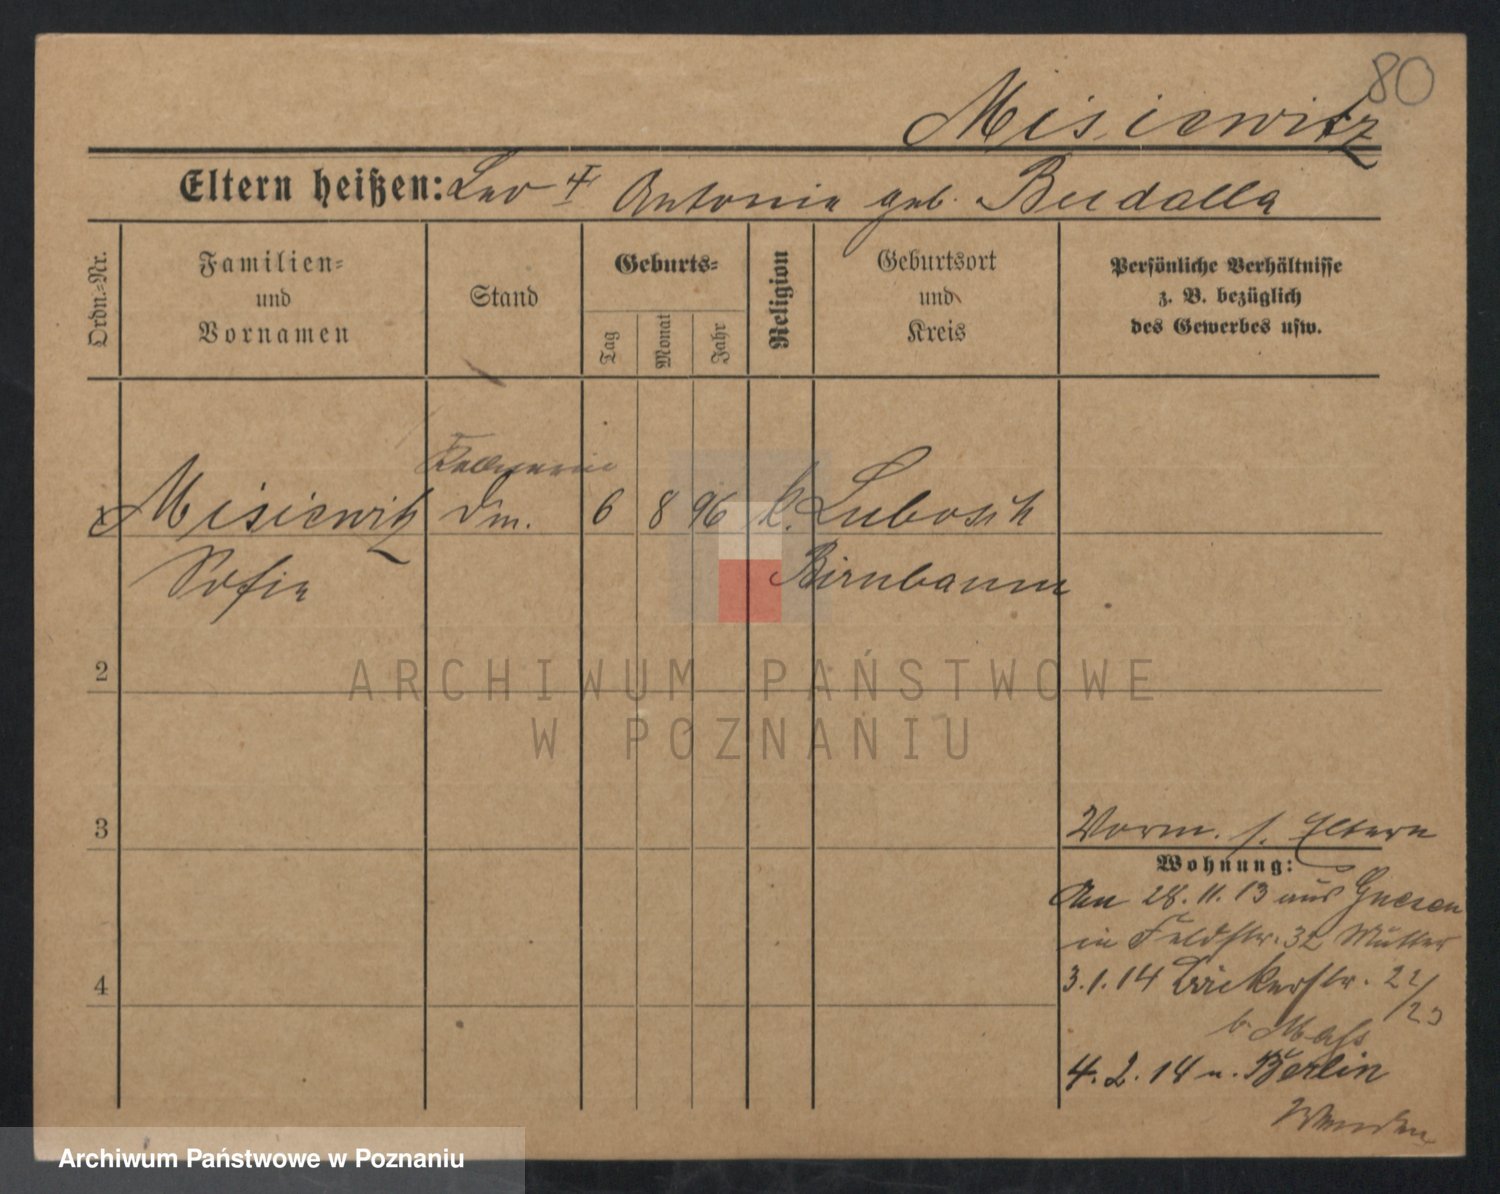 80
Misiewitz
Eltern heißen: Leo † Antonie geb. Budalla
Ordn.-Nr.
Familien-
und
Vornamen
Stand
Geburts-
Tag
Monat
Jahr
Religion
Geburtsort
und
Kreis
Persönliche Verhältnisse
z. B. bezüglich
des Gewerbes usw.
Kellnerin
1 Misiewitz Dm. 6 8 96 k. Lubosch
Sofie Birnbaum
2
3
4
Vorm. s. Eltern
Wohnung:
An 28. 11. 13 aus Gnesen
in Feldstr. 32 Mutter
3. 1. 14 Bäckerstr. 22/23
b.
4. 2. 14 n. Berlin
ARCHIWUM PAŃSTWOWE
W POZNANIU
Archiwum Państwowe w Poznaniu